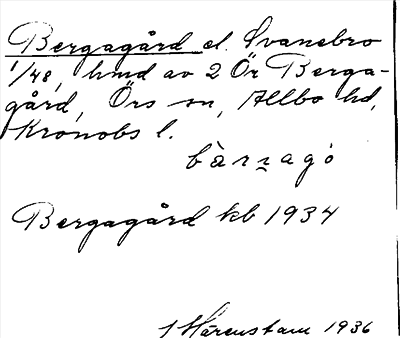 Bergagård el. Svanebro
1/48, hmd av 2 Ör Berga-
gård, Örs sn, Allbo hd,
Kronobs l.
bàrn̠agó
Bergagård kb 1934
J Härenstam 1936